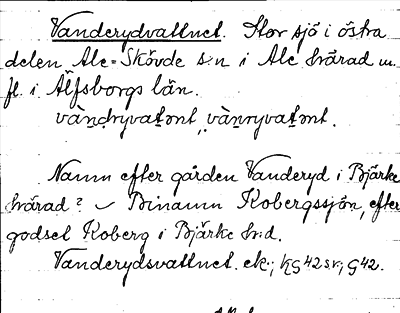 Vanderydvattnet. Stor sjö i östra
delen Ale-Skövde s:n i Ale härad m.
fl. i Älfsborgs län.
vàndryvatənt, vànryvatənt.
Namn efter gården Vanderyd i Bjärke
härad? – Binamn Kobergssjön, efter
godset Koberg i Bjärke h:d.
Vanderydsvattnet. ek.; KG42sv; G42.